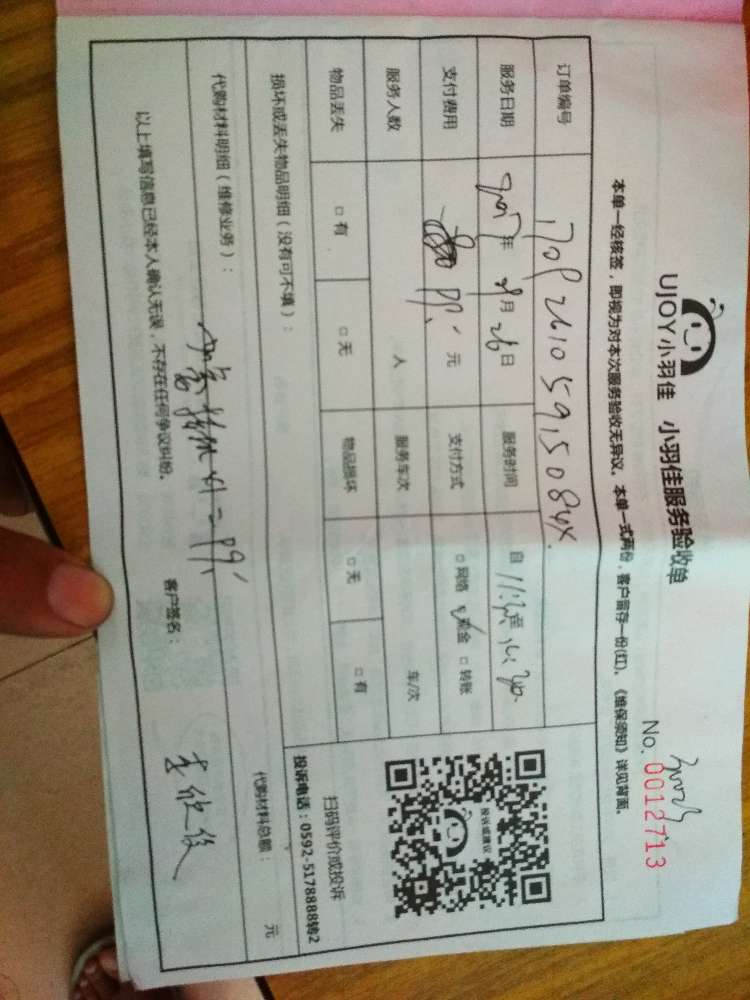 UJOY小羽佳 小羽佳服务验收单
No. 0012713
本单一经核签，即视为对本次服务验收无异议。本单一式两份，客户留存一份(红)。《维保须知》详见背面。
订单编号
服务日期 年 月 26 日 服务时间 自 至
支付费用 元 支付方式 □ 网络 ☑ 现金 □ 转账
服务人数 人 服务车次 车/次
物品丢失 □ 有 □ 无 物品损坏 □ 无 □ 有
损坏或丢失物品明细（没有可不填）：
代购材料明细（维修业务）： 代购材料总额： 元
以上填写信息已经本人确认无误，不存在任何争议纠纷。 客户签名：
投诉或建议
扫码评价或投诉
投诉电话：0592-5178888转2